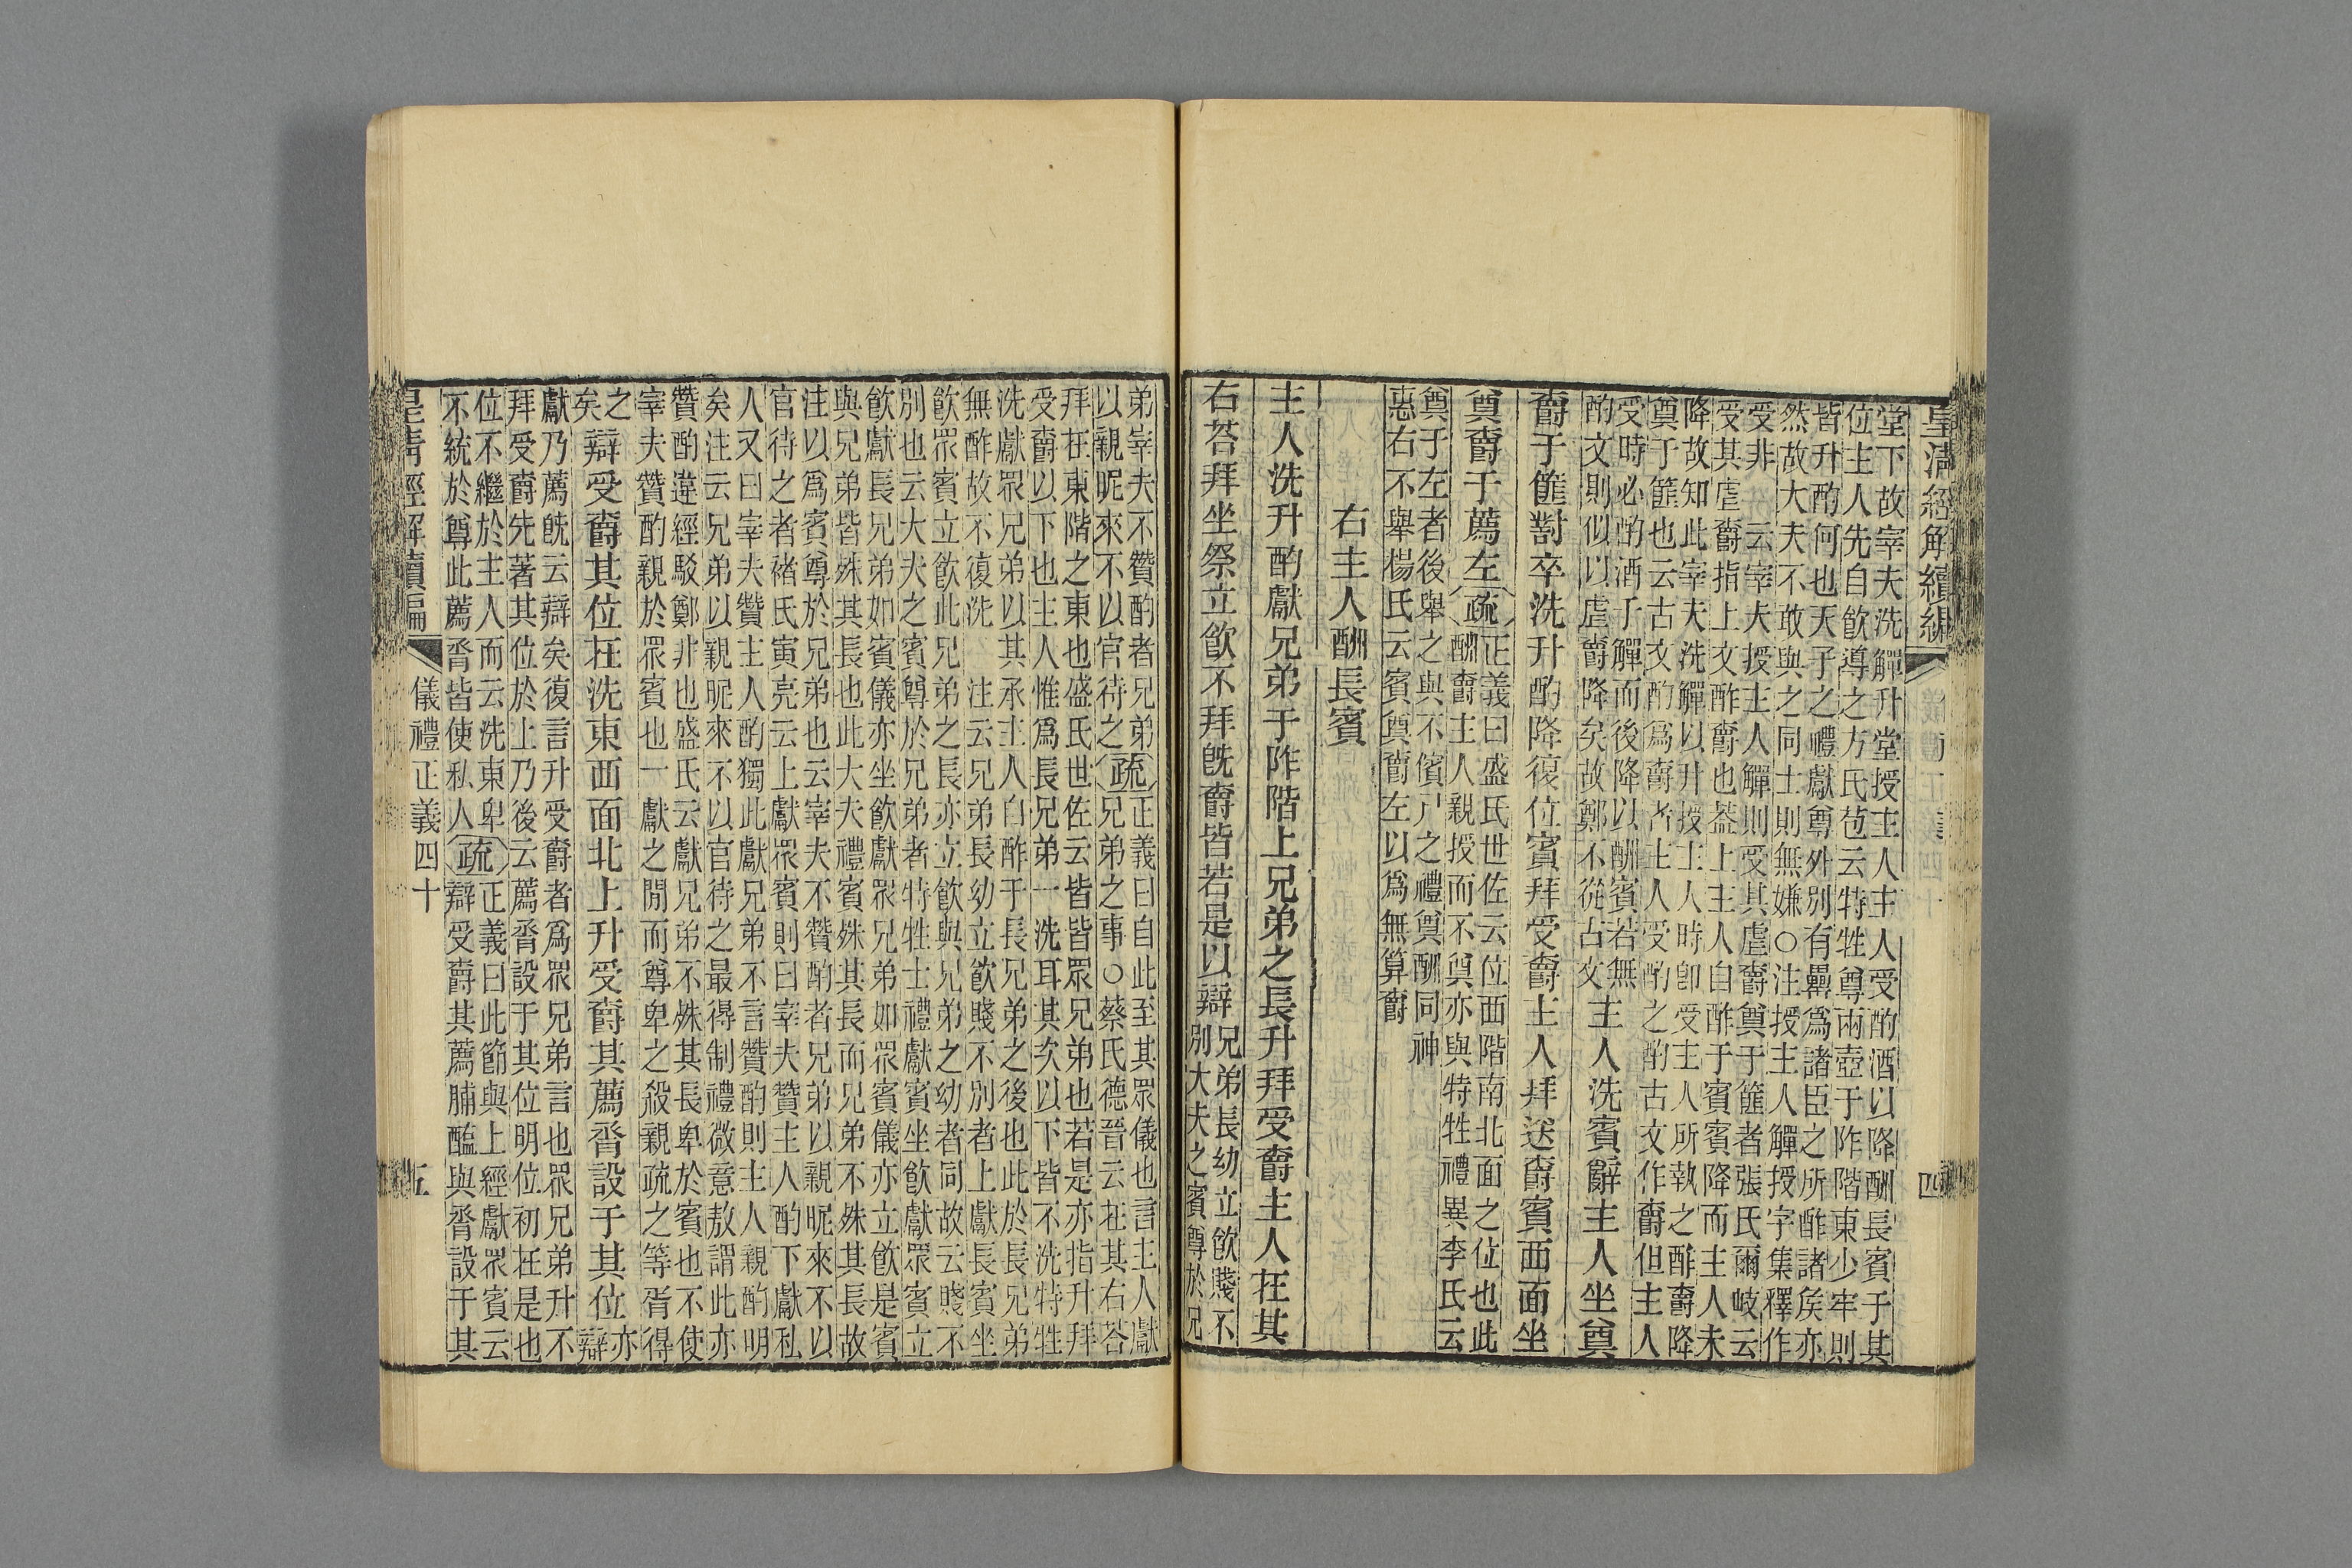 皇清經解續編 四
堂下故宰夫洗觶升堂授主人主人受酌酒以降酬長賓于其
位主人先自飮導之方氏苞云特牲尊兩壺于阼階東少牢則
皆升酌何也天子之禮獻尊外別有罍爲諸臣之所酢諸矦亦
然故大夫不敢與之同士則無嫌○注授主人觶授字集釋作
受非 云宰夫授主人觶則受其虛爵奠于篚者張氏爾岐云
受其虛爵指上文酢爵也葢上主人自酢于賓賓降而主人未
降故知此宰夫洗觶以升授主人時卽受主人所執之酢爵降
奠于篚也云古文酌爲爵者主人受酌之酌古文作爵但主人
受時必酌酒于觶而後降以酬賓若無
酌文則似以虛爵降矣故鄭不從古文
主人洗賓辭主人坐奠
爵于篚對卒洗升酌降復位賓拜受爵主人拜送爵賓西面坐
奠爵于薦左疏
正義曰盛氏世佐云位西面階南北面之位也此
酬爵主人親授而不奠亦與特牲禮異李氏云
奠于左者後舉之與不儐尸之禮奠酬同神
惠右不舉楊氏云賓奠爵左以爲無算爵
右主人酬長賓
主人洗升酌獻兄弟于阼階上兄弟之長升拜受爵主人在其
右荅拜坐祭立飮不拜旣爵皆若是以辯
兄弟長幼立飮賤不
別大夫之賓尊於兄
弟宰夫不贊酌者兄弟
以親昵來不以官待之疏
正義曰自此至其眾儀也言主人獻
兄弟之事○蔡氏德晉云在其右荅
拜在東階之東也盛氏世佐云皆皆眾兄弟也若是亦指升拜
受爵以下也主人惟爲長兄弟一洗耳其次以下皆不洗特牲
洗獻眾兄弟以其承主人自酢于長兄弟之後也此於長兄弟
無酢故不復洗 注云兄弟長幼立飮賤不別者上獻長賓坐
飮眾賓立飮此兄弟之長亦立飮與兄弟之幼者同故云賤不
別也云大夫之賓尊於兄弟者特牲士禮獻賓坐飮獻眾賓立
飮獻長兄弟如賓儀亦坐飮獻眾兄弟如眾賓儀亦立飮是賓
與兄弟皆殊其長也此大夫禮賓殊其長而兄弟不殊其長故
注以爲賓尊於兄弟也云宰夫不贊酌者兄弟以親昵來不以
官待之者褚氏寅亮云上獻眾賓則曰宰夫贊主人酌下獻私
人又曰宰夫贊主人酌獨此獻兄弟不言贊酌則主人親酌明
矣注云兄弟以親昵來不以官待之最得制禮微意敖謂此亦
贊酌違經駁鄭非也盛氏云獻兄弟不殊其長卑於賓也不使
宰夫贊酌親於眾賓也一獻之閒而尊卑之殺親疏之等胥得
之
矣
辯受爵其位在洗東西面北上升受爵其薦脀設于其位
亦
辯
獻乃薦旣云辯矣復言升受爵者爲眾兄弟言也眾兄弟升不
拜受爵先著其位於上乃後云薦脀設于其位明位初在是也
位不繼於主人而云洗東卑
不統於尊此薦脀皆使私人疏
正義曰此節與上經獻眾賓云
辯受爵其薦脯醢與脀設于其
皇清經解續編 儀禮正義四十 五